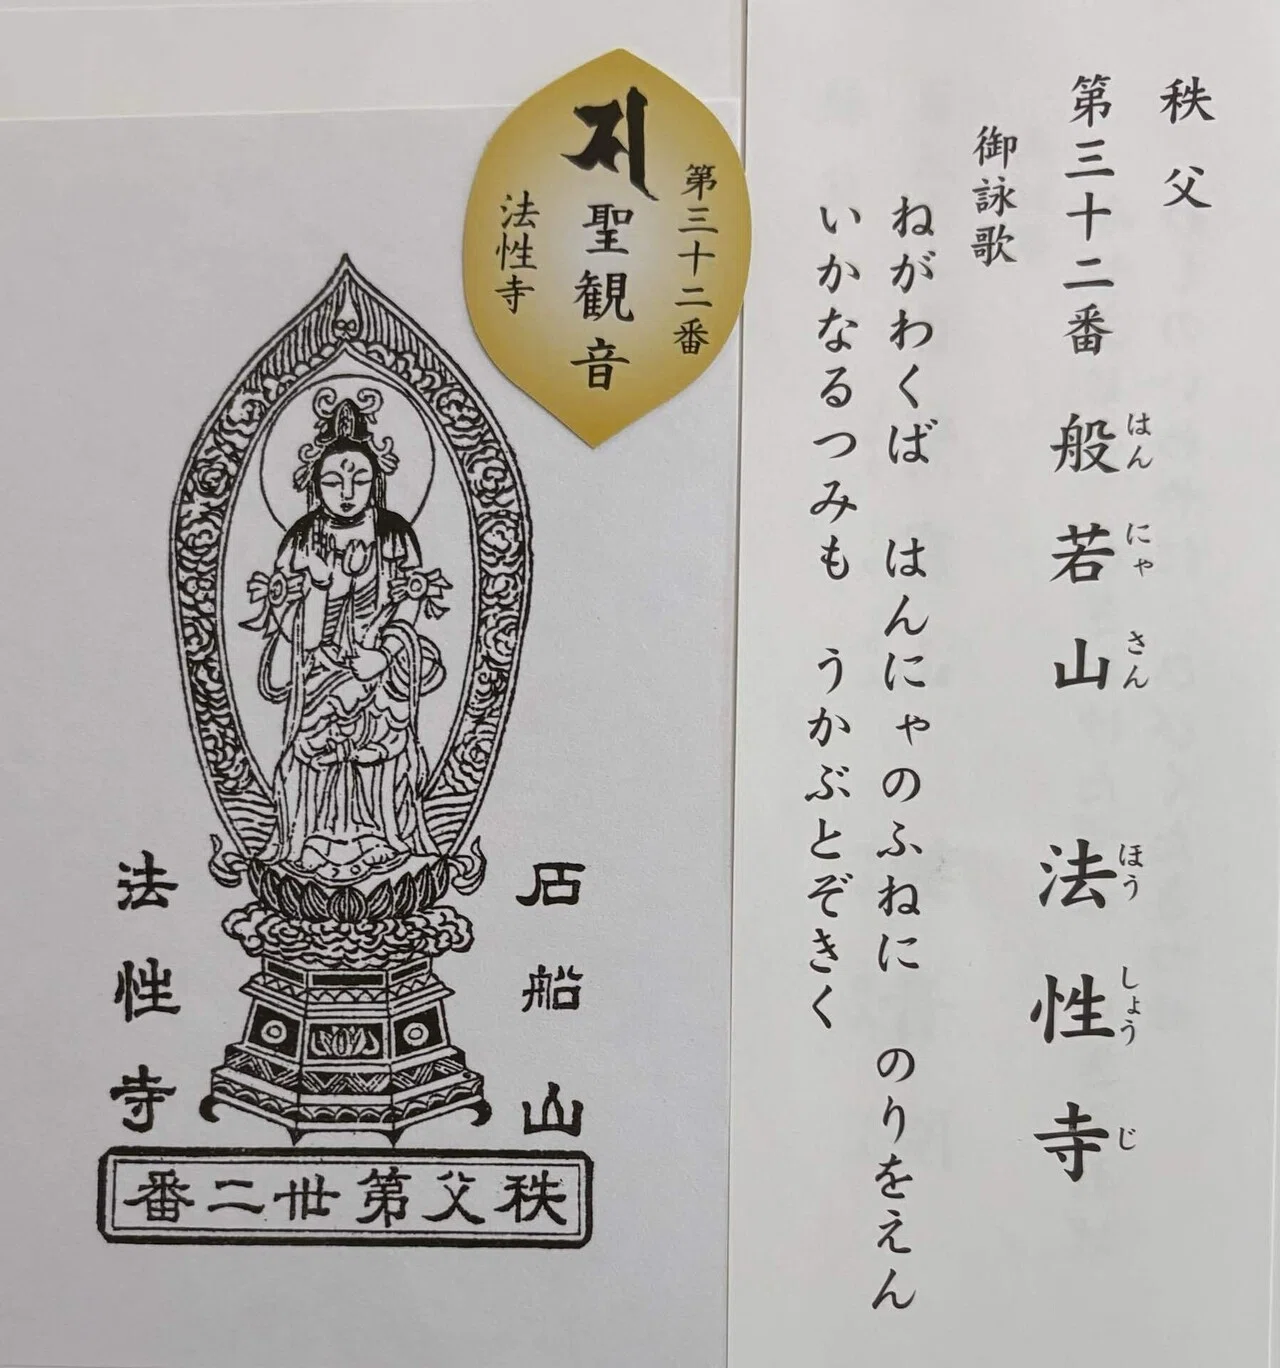 秩父
第三十二番 般若山 法性寺
はんにゃさん ほうしょうじ
御詠歌
ねがわくば はんにゃのふねに のりをえん
いかなるつみも うかぶとぞきく
第三十二番
聖観音
法性寺
石船山
法性寺
秩父第丗二番